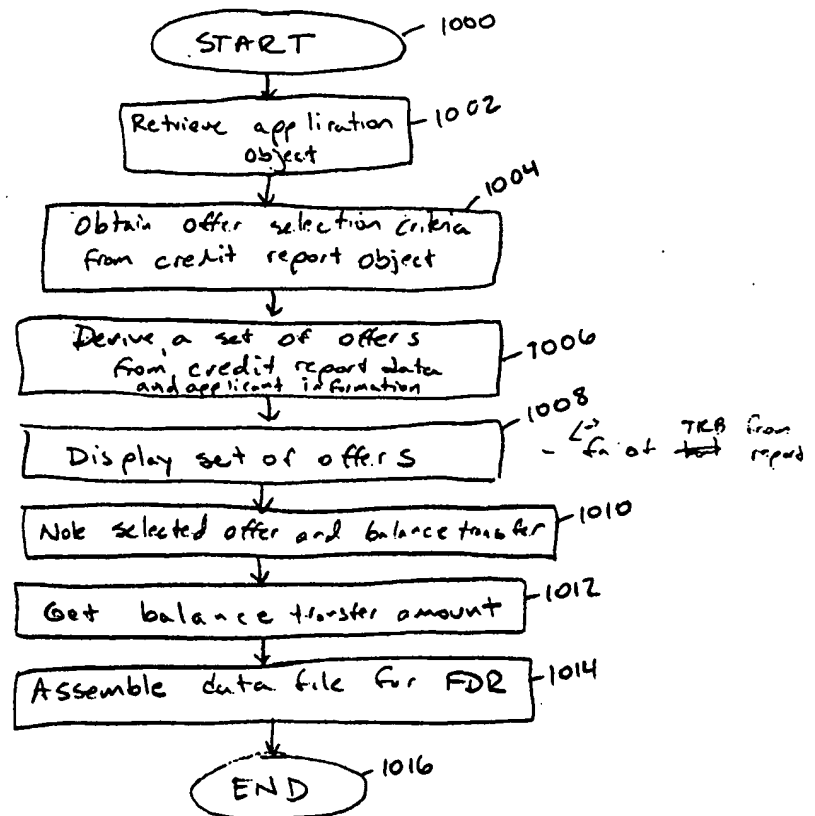 START
1000
Retrieve application
object
1002
Obtain offer selection criteria
from credit report object
1004
Derive a set of offers
from credit report data
and applicant information
1006
Display set of offers
1008
TRB from
of report
Note selected offer and balance transfer
1010
Get balance transfer amount
1012
Assemble data file for FDR
1014
END
1016